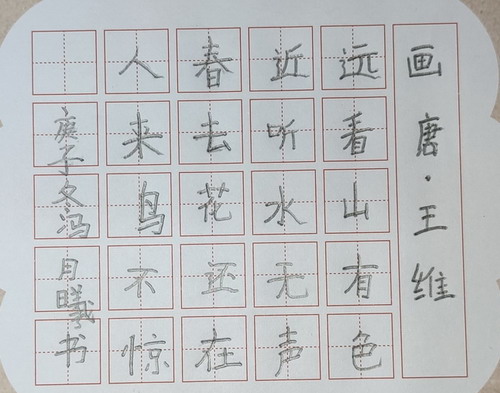 画 唐·王维
远看山有色
近听水无声
春去花还在
人来鸟不惊
庚子冬冯月曦书